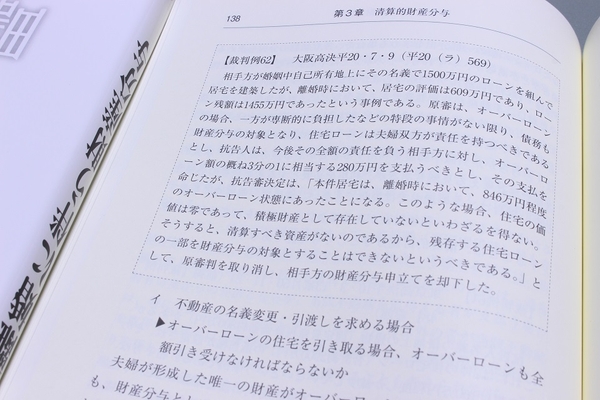 138
第3章 清算的財産分与
【裁判例62】 大阪高決平20・7・9（平20（ラ）569）
相手方が婚姻中自己所有地上にその名義で1500万円のローンを組んで
居宅を建築したが、離婚時において、居宅の評価は609万円であり、ロー
ン残額は1455万円であったという事例である。原審は、オーバーローン
の場合、一方が専断的に負担したなどの特段の事情がない限り、債務も
財産分与の対象となり、住宅ローンは夫婦双方が責任を持つべきである
とし、抗告人は、今後その全額の責任を負う相手方に対し、オーバーロ
ーン額の概ね3分の1に相当する280万円を支払うべきとし、その支払を
命じたが、抗告審決定は、「本件居宅は、離婚時において、846万円程度
のオーバーローン状態にあったことになる。このような場合、住宅の価
値は零であって、積極財産として存在していないといわざるを得ない。
そうすると、清算すべき資産がないのであるから、残存する住宅ローン
の一部を財産分与の対象とすることはできないというべきである。」と
して、原審判を取り消し、相手方の財産分与申立てを却下した。
イ 不動産の名義変更・引渡しを求める場合
▶オーバーローンの住宅を引き取る場合、オーバーローンも全
額引き受けなければならないか
夫婦が形成した唯一の財産がオーバー
も、財産分与と